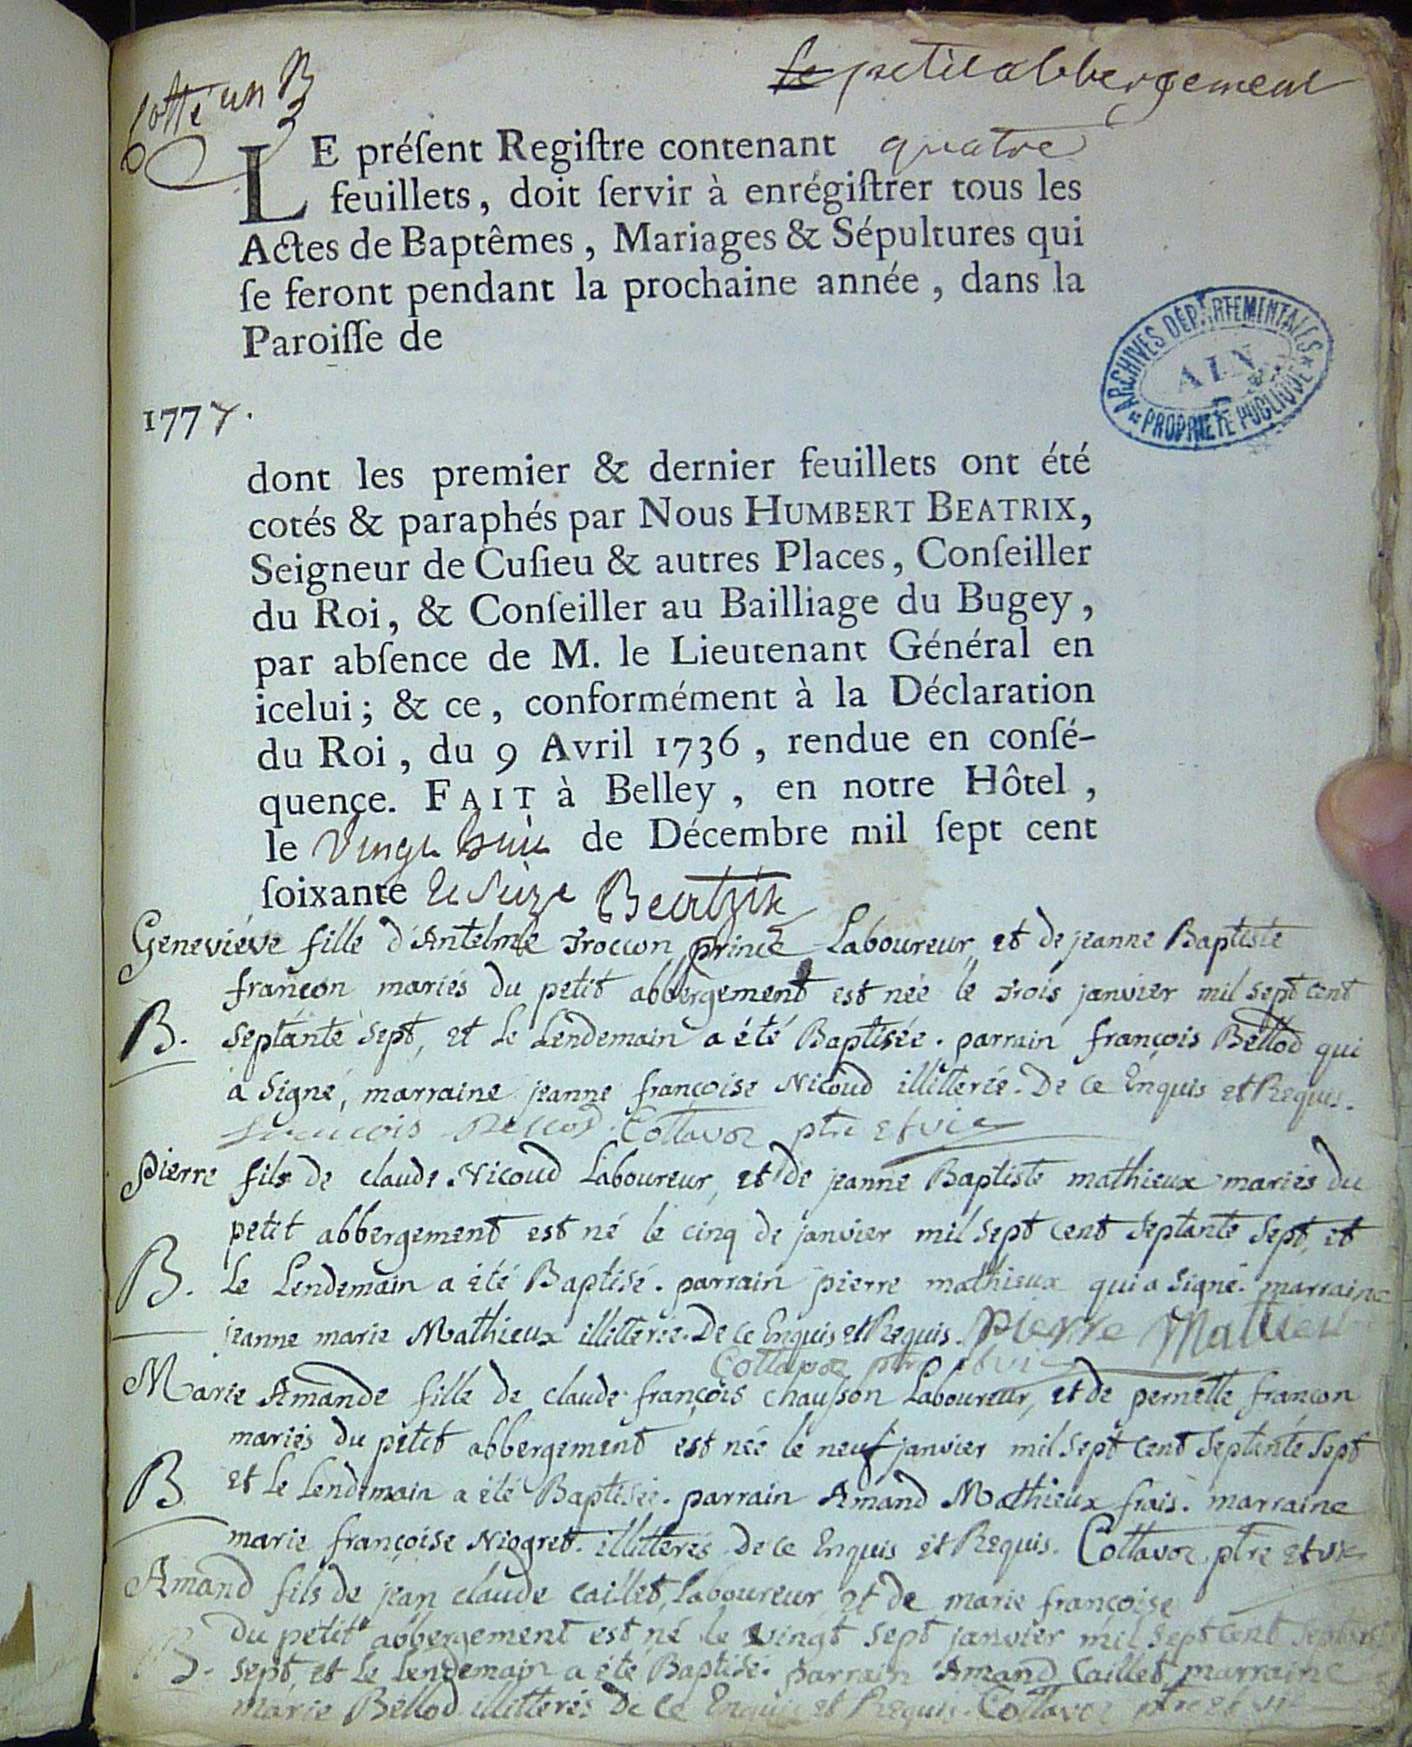 Cotté un B
Le petit abbergement
LE préſent Regiſtre contenant quatre
feuillets, doit ſervir à enrégiſtrer tous les
Actes de Baptêmes, Mariages & Sépultures qui
ſe feront pendant la prochaine année, dans la
Paroiſſe de
1777.
ARCHIVES DEPARTEMENTALES
AIN
PROPRIETE PUBLIQUE
dont les premier & dernier feuillets ont été
cotés & paraphés par Nous HUMBERT BEATRIX,
Seigneur de Cuſieu & autres Places, Conſeiller
du Roi, & Conſeiller au Bailliage du Bugey,
par abſence de M. le Lieutenant Général en
icelui; & ce, conformément à la Déclaration
du Roi, du 9 Avril 1736, rendue en conſé-
quence. FAIT à Belley, en notre Hôtel,
le vingt huit de Décembre mil ſept cent
ſoixante et seize Beatrix
Geneviéve fille d'Antelme Troccon prince Laboureur, et de jeanne Baptiste
françon mariés du petit abbergement est née le trois janvier mil sept cent
B. septante sept, et le Lendemain a été Baptisée. parrain françois Bellod qui
a signé, marraine jeanne françoise Nicoud illitterée. De ce Enquis et Requis.
francois Bellod. Cottavoz ptre et vic
Pierre fils de claude Nicoud Laboureur, et de jeanne Baptiste mathieux mariés du
petit abbergement est né le cinq de janvier mil sept cent septante sept, et
B. Le Lendemain a été Baptisé. parrain pierre mathieux qui a signé. marraine
jeanne marie Mathieux illitterée. De ce Enquis et Requis. pierre Mathieu
Cottavoz ptre et vic
Marie Amande fille de claude françois chausson Laboureur, et de pernette françon
mariés du petit abbergement est née le neuf janvier mil sept cent septante sept
B et Le Lendemain a été Baptisée. parrain Amand Mathieux frais. marraine
marie françoise Niogret. illitterés De ce Enquis et Requis. Cottavoz ptre et vic
Amand fils de jean claude caillet, Laboureur et de marie françoise
du petit abbergement est né le vingt sept janvier mil sept cent septante
B. sept, et Le Lendemain a été Baptisé. parrain Amand Caillet marraine
marie Bellod illitterés De ce Enquis et Requis. Cottavoz ptre et vic